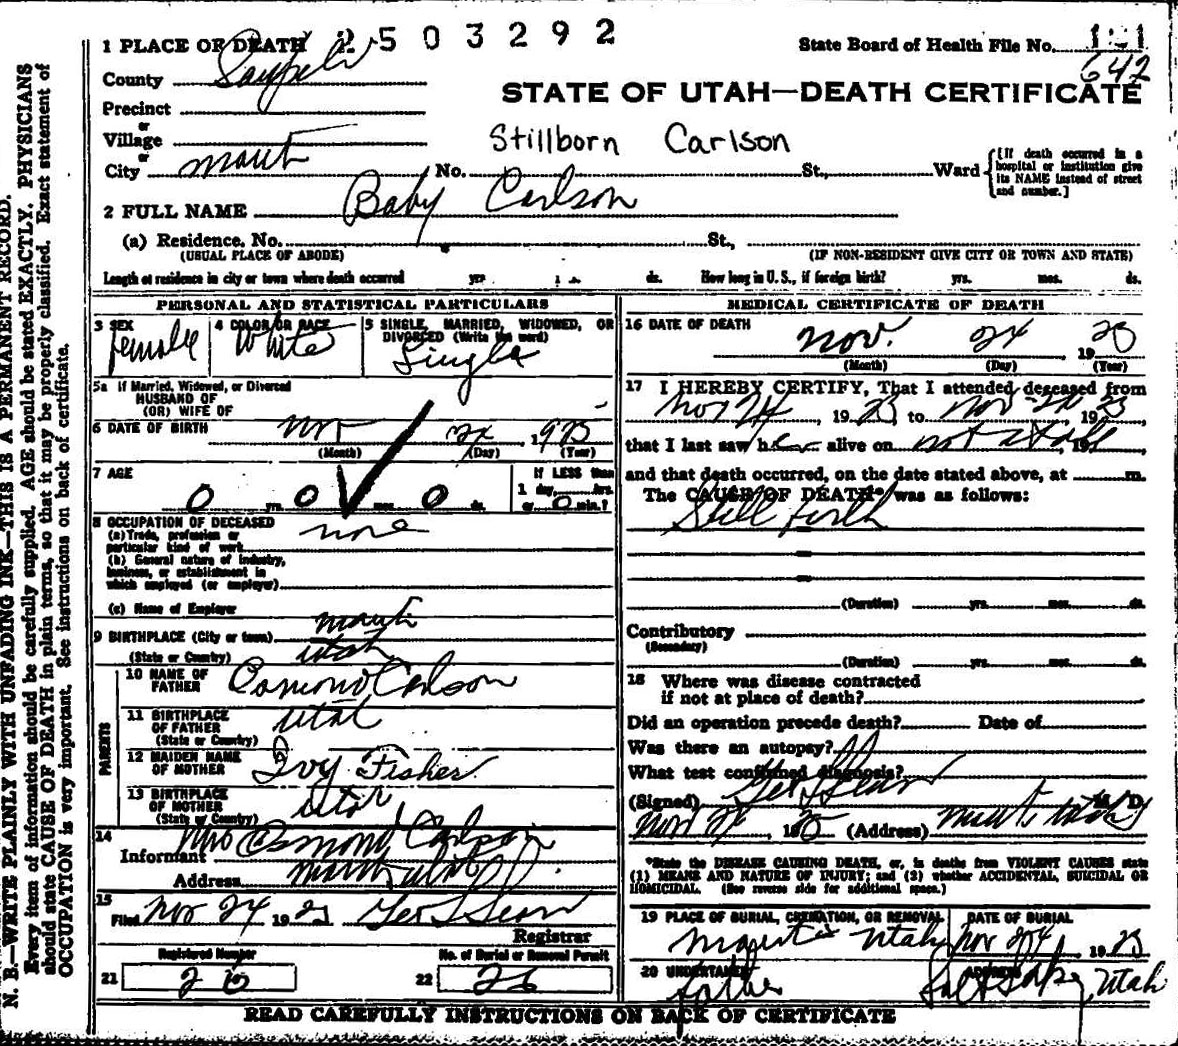 N. B.—WRITE PLAINLY WITH UNFADING INK—THIS IS A PERMANENT RECORD.
Every item of information should be carefully supplied. AGE should be stated EXACTLY. PHYSICIANS
should state CAUSE OF DEATH in plain terms, so that it may be properly classified. Exact statement of
OCCUPATION is very important. See instructions on back of certificate.
2503292
State Board of Health File No.
642
1 PLACE OF DEATH
County
STATE OF UTAH—DEATH CERTIFICATE
Precinct
or
Village
Stillborn Carlson
or
City No. St., Ward [If death occurred in a hospital or institution give its NAME instead of street and number.]
2 FULL NAME Baby Carlson
(a) Residence. No. St.,
(USUAL PLACE OF ABODE) (IF NON-RESIDENT GIVE CITY OR TOWN AND STATE)
Length of residence in city or town where death occurred yrs ds. How long in U. S., if foreign birth? yrs. mos. ds.
PERSONAL AND STATISTICAL PARTICULARS
3 SEX Female
4 COLOR OR RACE White
5 SINGLE, MARRIED, WIDOWED, OR DIVORCED (Write the word) Single
5a If Married, Widowed, or Divorced
HUSBAND OF
(OR) WIFE OF
6 DATE OF BIRTH Nov 24, 1925
(Month) (Day) (Year)
7 AGE 0 yrs 0 mos. 0 ds.
If LESS than 1 day, hrs. or 0 min.?
8 OCCUPATION OF DECEASED none
(a) Trade, profession or
particular kind of work
(b) General nature of industry,
business, or establishment in
which employed (or employer)
(c) Name of Employer
9 BIRTHPLACE (City or town)
(State or Country) Utah
PARENTS
10 NAME OF FATHER Osmond Carlson
11 BIRTHPLACE OF FATHER (State or Country) Utah
12 MAIDEN NAME OF MOTHER Ivy Fisher
13 BIRTHPLACE OF MOTHER (State or Country) Utah
14
Informant Mrs Osmond Carlson
Address
15
Filed Nov 24 192
Registrar
Registered Number
21
No. of Burial or Removal Permit
22 26
MEDICAL CERTIFICATE OF DEATH
16 DATE OF DEATH
Nov. 24 1925
(Month) (Day) (Year)
17 I HEREBY CERTIFY, That I attended deceased from
Nov 24, 1925 to Nov 24, 1925
that I last saw her alive on not at all, 19
and that death occurred, on the date stated above, at m.
The CAUSE OF DEATH* was as follows:
Still birth
(Duration) yrs. mos. ds.
Contributory
(Secondary)
(Duration) yrs. mos. ds.
18 Where was disease contracted
if not at place of death?
Did an operation precede death? Date of
Was there an autopsy?
What test confirmed diagnosis?
(Signed) M. D.
Nov 24, 1925 (Address)
*State the DISEASE CAUSING DEATH, or, in deaths from VIOLENT CAUSES state
(1) MEANS AND NATURE OF INJURY; and (2) whether ACCIDENTAL, SUICIDAL OR
HOMICIDAL. (See reverse side for additional space.)
19 PLACE OF BURIAL, CREMATION, OR REMOVAL
Utah
DATE OF BURIAL
Nov 24, 1925
20 UNDERTAKER
father
ADDRESS
Utah
READ CAREFULLY INSTRUCTIONS ON BACK OF CERTIFICATE